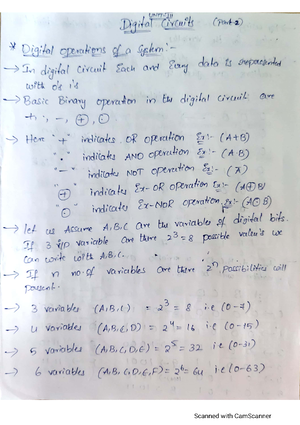 Digital Circuits (Part-2)
* Digital operations of a system :-
→ In digital circuit Each and Every data is represented
with 0's 1's
→ Basic Binary operation in the digital circuit are
+, ·, −, ⊕, ⊙
→ Here "+" indicates OR operation Ex:- (A+B)
"·" indicates AND operation Ex:- (A·B)
"-" indicates NOT operation Ex:- (A̅)
⊕ indicates Ex-OR operation Ex:- (A⊕B)
⊙ indicates Ex-NOR operation Ex:- (A⊙B)
→ let us Assume A,B,C are the variables of digital bits.
If 3 i/p variable are there 2³=8 possible value's we
can write with A,B,C.
→ If n no.of variables are there 2ⁿ possibilities will
present.
→ 3 variables (A,B,C) = 2³ = 8 i.e (0-7)
→ 4 variables (A,B,C,D) = 2⁴ = 16 i.e (0-15)
→ 5 variables (A,B,C,D,E) = 2⁵ = 32 i.e (0-31)
→ 6 variables (A,B,C,D,E,F) = 2⁶ = 64 i.e (0-63)
Scanned with CamScanner